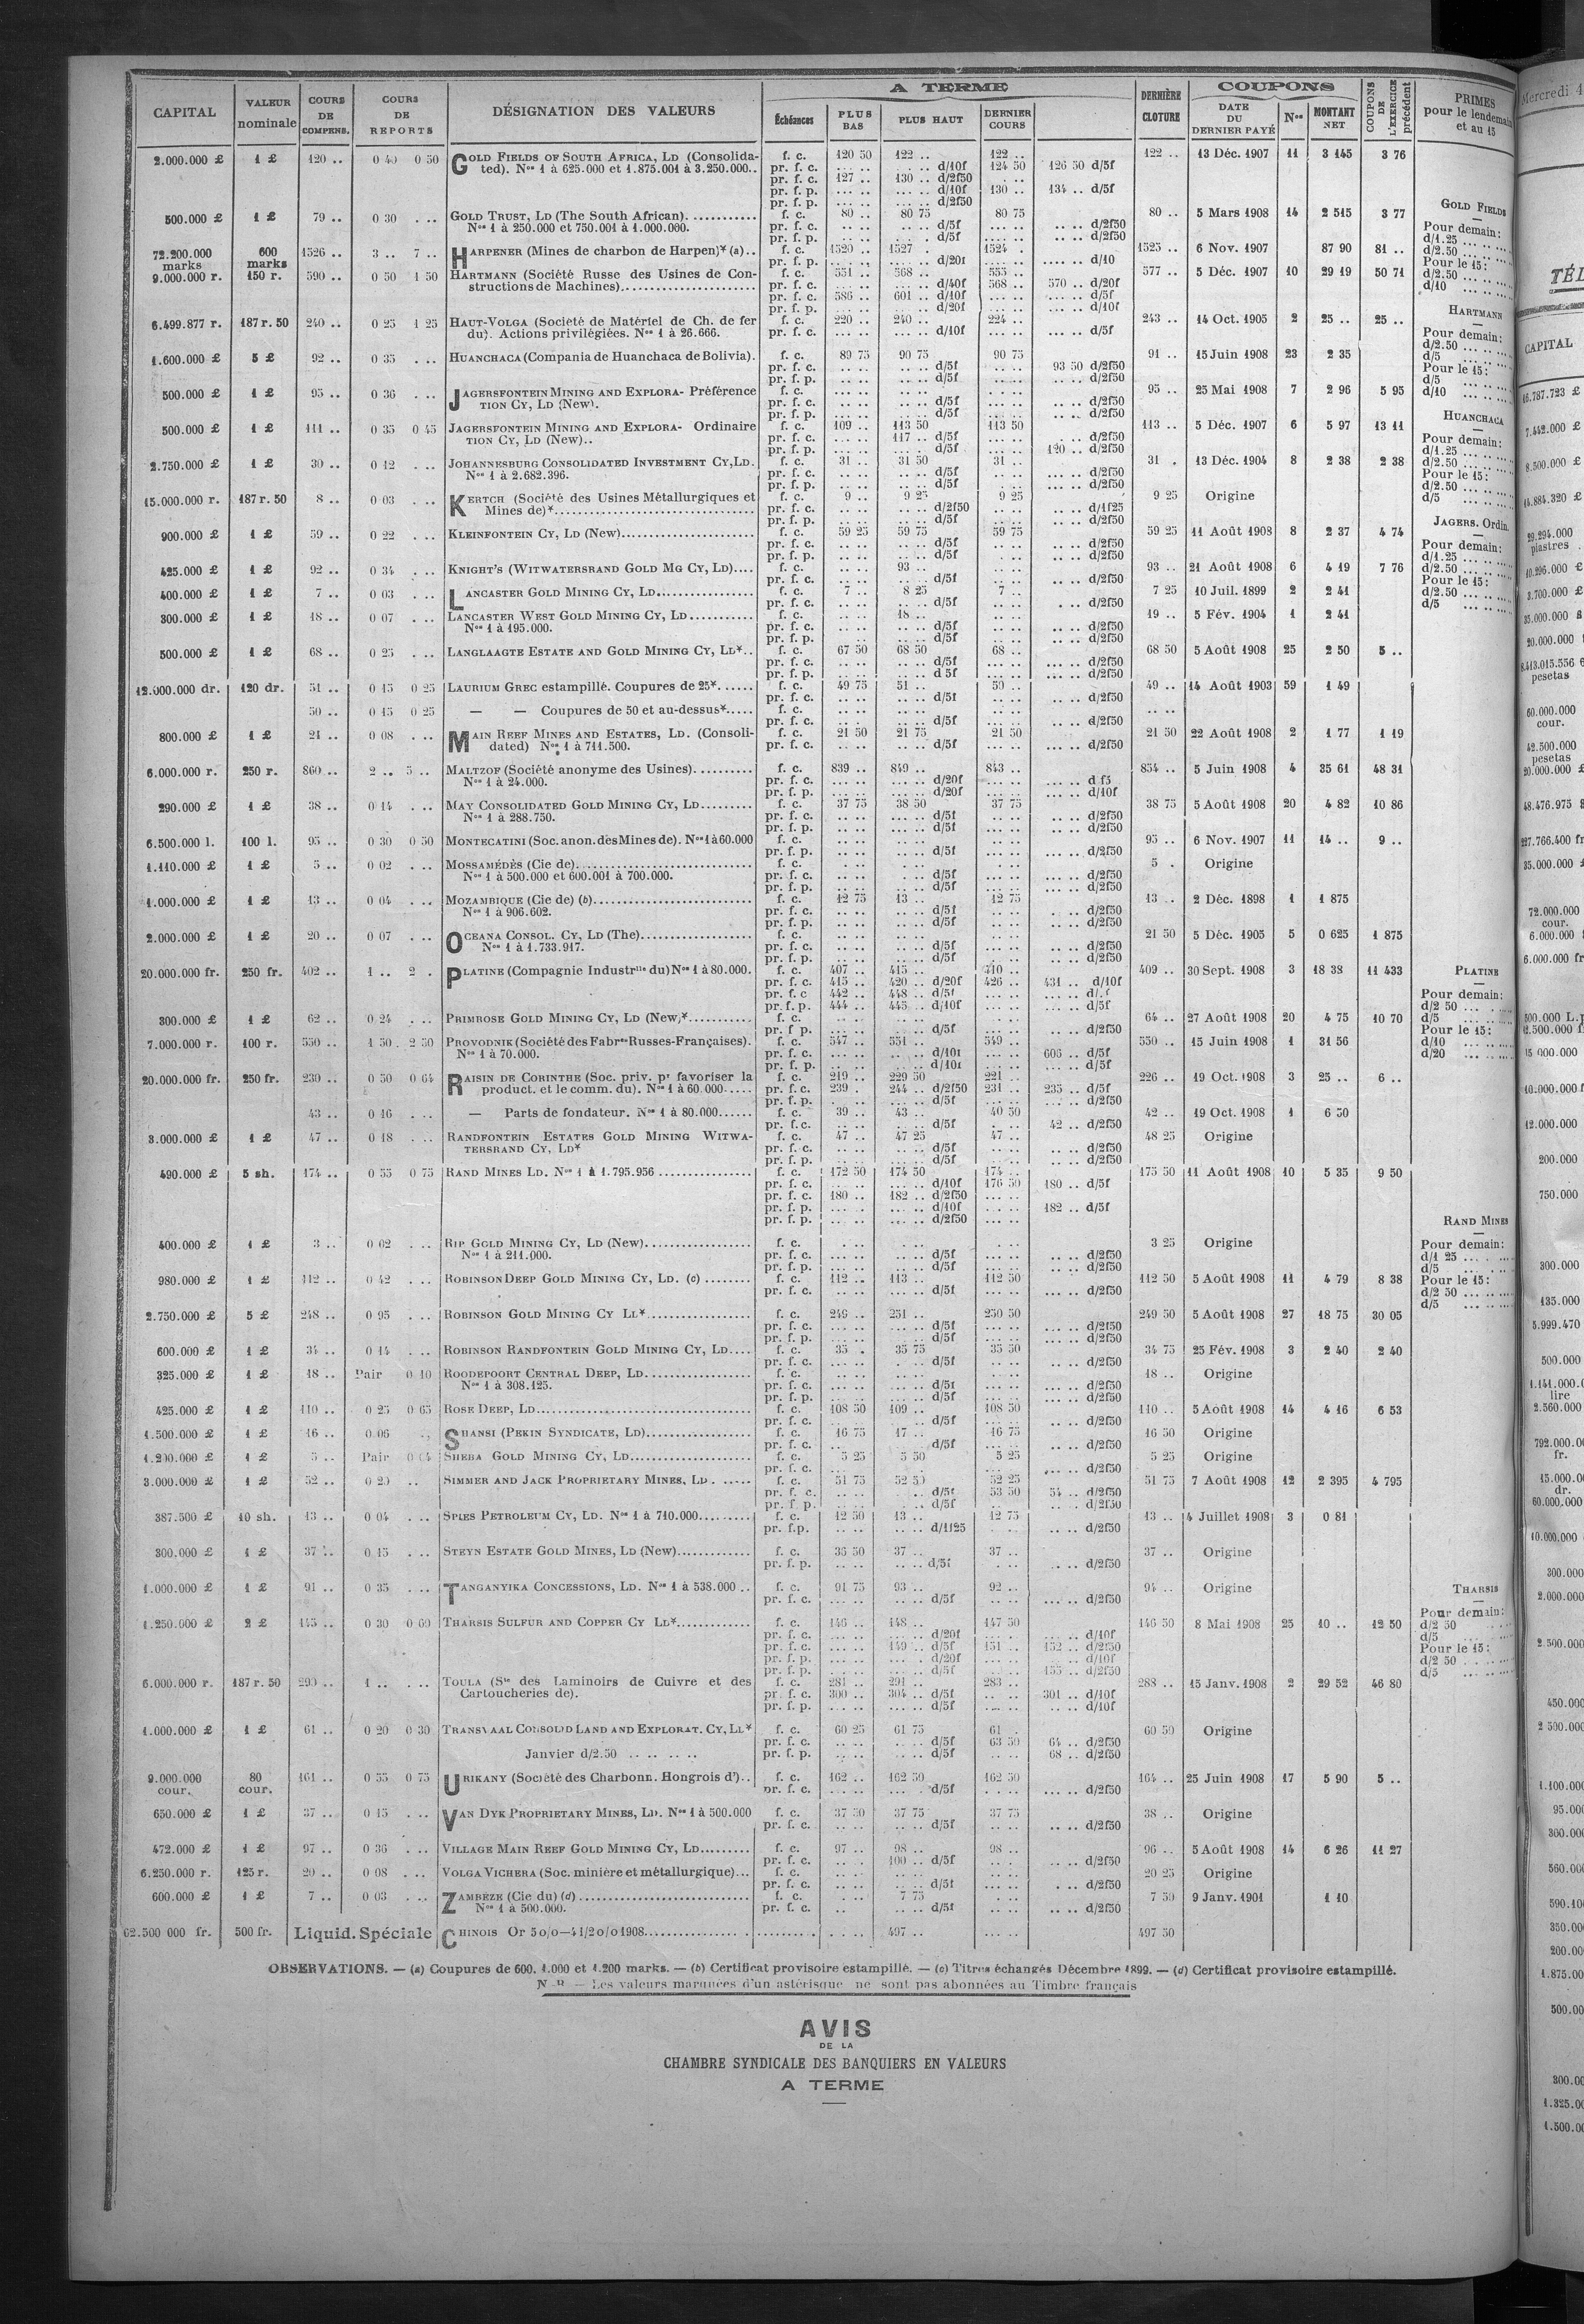 CAPITAL VALEUR nominale COURS DE COMPENS. COURS DE REPORTS DÉSIGNATION DES VALEURS A TERME Échéances PLUS BAS PLUS HAUT DERNIER COURS DERNIÈRE CLOTURE COUPONS DATE DU DERNIER PAYÉ Nos MONTANT NET COUPONS DE L'EXERCICE précédent PRIMES pour le lendemain et au 15
2.000.000 £ 1 £ 120 .. 0 40 0 50 GOLD FIELDS OF SOUTH AFRICA, LD (Consolida- f. c. 120 50 122 .. 122 .. 122 .. 13 Déc. 1907 11 3 145 3 76
ted). Nos 1 à 625.000 et 1.875.001 à 3.250.000.. pr. f. c. d/10f 124 50 126 50 d/5f
pr. f. c. 127 .. 130 .. d/2f50
pr. f. p. d/10f 130 .. 134 .. d/5f
pr. f. p. d/2f50
500.000 £ 1 £ 79 .. 0 30 GOLD TRUST, LD (The South African) f. c. 80 .. 80 75 80 75 80 .. 5 Mars 1908 14 2 515 3 77
Nos 1 à 250.000 et 750.001 à 1.000.000. pr. f. c. d/5f d/2f50
pr. f. p. d/5f d/2f50
72.200.000 marks 600 marks 1526 .. 3 .. 7 .. HARPENER (Mines de charbon de Harpen)* (a).. f. c. 1520 .. 1527 . 1524 .. 1525 .. 6 Nov. 1907 87 90 81 ..
pr. f. p. d/20f d/10
9.000.000 r. 150 r. 590 .. 0 50 1 50 HARTMANN (Société Russe des Usines de Con- f. c. 551 .. 568 .. 555 .. 577 .. 5 Déc. 1907 10 29 19 50 71
structions de Machines) pr. f. c. d/40f 568 .. 570 .. d/20f
pr. f. c. 586 .. 601 .. d/10f d/5f
pr. f. p. d/20f d/10f
6.499.877 r. 187 r. 50 240 .. 0 25 1 25 HAUT-VOLGA (Societé de Matériel de Ch. de fer f. c. 220 .. 240 .. 224 .. 243 .. 14 Oct. 1905 2 25 .. 25 ..
du). Actions privilégiées. Nos 1 à 26.666. pr. f. c. d/10f d/5f
1.600.000 £ 5 £ 92 .. 0 35 HUANCHACA (Compania de Huanchaca de Bolivia). f. c. 89 75 90 75 90 75 91 .. 15 Juin 1908 23 2 35
pr. f. c. d/5f 93 50 d/2f50
pr. f. p. d/5f d/2f50
500.000 £ 1 £ 95 .. 0 36 JAGERSFONTEIN MINING AND EXPLORA- Préférence f. c. 95 .. 25 Mai 1908 7 2 96 5 95
TION CY, LD (New). pr. f. c. d/5f d/2f50
pr. f. p. d/5f d/2f50
500.000 £ 1 £ 111 .. 0 35 0 45 JAGERSFONTEIN MINING AND EXPLORA- Ordinaire f. c. 109 .. 113 50 113 50 113 .. 5 Déc. 1907 6 5 97 13 11
TION CY, LD (New).. pr. f. c. 117 .. d/5f d/2f50
pr. f. p. d/5f 120 .. d/2f50
2.750.000 £ 1 £ 30 .. 0 12 JOHANNESBURG CONSOLIDATED INVESTMENT CY, LD. f. c. 31 .. 31 50 31 .. 31 . 13 Déc. 1904 8 2 38 2 38
Nos 1 à 2.682.396. pr. f. c. d/5f d/2f50
pr. f. p. d/5f d/2f50
15.000.000 r. 187 r. 50 8 .. 0 03 KERTCH (Société des Usines Métallurgiques et f. c. 9 .. 9 25 9 25 9 25 Origine
Mines de)* pr. f. c. d/2f50 d/1f25
pr. f. p. d/5f d/2f50
900.000 £ 1 £ 59 .. 0 22 KLEINFONTEIN CY, LD (New) f. c. 59 25 59 75 59 75 59 25 11 Août 1908 8 2 37 4 74
pr. f. c. d/5f d/2f50
pr. f. p. d/5f d/2f50
425.000 £ 1 £ 92 .. 0 34 KNIGHT'S (WITWATERSRAND GOLD MG CY, LD) f. c. 93 .. 93 .. 21 Août 1908 6 4 19 7 76
pr. f. c. d/5f d/2f50
400.000 £ 1 £ 7 .. 0 03 LANCASTER GOLD MINING CY, LD f. c. 7 .. 8 25 7 .. 7 25 10 Juil. 1899 2 2 41
pr. f. c. d/5f d/2f50
300.000 £ 1 £ 18 .. 0 07 LANCASTER WEST GOLD MINING CY, LD f. c. 18 .. 19 .. 5 Fév. 1904 1 2 41
Nos 1 à 195.000. pr. f. c. d/5f d/2f50
pr. f. p. d/5f d/2f50
500.000 £ 1 £ 68 .. 0 25 LANGLAAGTE ESTATE AND GOLD MINING CY, LD*.. f. c. 67 50 68 50 68 .. 68 50 5 Août 1908 25 2 50 5 ..
pr. f. c. d/5f d/2f50
pr. f. p. d 5f d/2f50
12.000.000 dr. 120 dr. 51 .. 0 15 0 25 LAURIUM GREC estampillé. Coupures de 25* f. c. 49 75 51 .. 50 .. 49 .. 14 Août 1903 59 1 49
pr. f. c. d/5f d/2f50
50 .. 0 15 0 25 — — Coupures de 50 et au-dessus* f. c.
pr. f. c. d/5f d/2f50
800.000 £ 1 £ 21 .. 0 08 MAIN REEF MINES AND ESTATES, LD. (Consoli- f. c. 21 50 21 75 21 50 21 50 22 Août 1908 2 1 77 1 19
dated) Nos 1 à 711.500. pr. f. c. d/5f d/2f50
6.000.000 r. 250 r. 860 .. 2 .. 5 .. MALTZOF (Société anonyme des Usines) f. c. 839 .. 849 .. 843 .. 854 .. 5 Juin 1908 4 35 61 48 31
Nos 1 à 24.000. pr. f. c. d/20f d f5
pr. f. p. d/20f d/10f
290.000 £ 1 £ 38 .. 0 14 MAY CONSOLIDATED GOLD MINING CY, LD f. c. 37 75 38 50 37 75 38 75 5 Août 1908 20 4 82 10 86
Nos 1 à 288.750. pr. f. c. d/5f d/2f50
pr. f. p. d/5f d/2f50
6.500.000 l. 100 l. 95 .. 0 30 0 50 MONTECATINI (Soc. anon. des Mines de). Nos 1 à 60.000 f. c. 95 .. 6 Nov. 1907 11 14 .. 9 ..
pr. f. p. d/5f d/2f50
1.110.000 £ 1 £ 5 .. 0 02 MOSSAMÉDÈS (Cie de) f. c. 5 . Origine
Nos 1 à 500.000 et 600.001 à 700.000. pr. f. c. d/5f d/2f50
pr. f. p. d/5f d/2f50
1.000.000 £ 1 £ 13 .. 0 04 MOZAMBIQUE (Cie de) (b) f. c. 12 75 13 .. 12 75 13 .. 2 Déc. 1898 1 1 875
Nos 1 à 906.602. pr. f. c. d/5f d/2f50
pr. f. p. d/5f d/2f50
2.000.000 £ 1 £ 20 .. 0 07 OCEANA CONSOL. CY, LD (The) f. c. 21 50 5 Déc. 1905 5 0 625 1 875
Nos 1 à 1.733.917. pr. f. c. d/5f d/2f50
pr. f. p. d/5f d/2f50
20.000.000 fr. 250 fr. 402 .. 1 .. 2 . PLATINE (Compagnie Industrlle du) Nos 1 à 80.000. f. c. 407 .. 415 .. 410 .. 409 .. 30 Sept. 1908 3 18 38 11 433
pr. f. c. 415 .. 420 .. d/20f 426 .. 431 .. d/10f
pr. f. c 442 .. 448 .. d/5f
pr. f. p. 444 .. 445 .. d/10f d/5f
300.000 £ 1 £ 62 .. 0 24 PRIMROSE GOLD MINING CY, LD (New)* f. c. 64 .. 27 Août 1908 20 4 75 10 70
pr. f p. d/5f d/2f50
7.000.000 r. 100 r. 550 .. 1 50 . 2 50 PROVODNIK (Société des Fabres Russes-Françaises). f. c. 547 .. 551 .. 549 .. 550 .. 15 Juin 1908 1 31 56
Nos 1 à 70.000. pr. f. c. d/10f 606 .. d/5f
pr. f. p. d/10f d/5f
20.000.000 fr. 250 fr. 230 .. 0 50 0 64 RAISIN DE CORINTHE (Soc. priv. pr favoriser la f. c. 219 .. 229 50 221 .. 226 .. 19 Oct. 1908 3 25 .. 6 ..
product. et le comm. du). Nos 1 à 60.000 pr. f. c. 239 . 244 .. d/2f50 231 .. 235 .. d/5f
pr. f. p. d/5f d/2f50
43 .. 0 16 — Parts de fondateur. Nos 1 à 80.000 f. c. 39 .. 43 .. 40 50 42 .. 19 Oct. 1908 1 6 50
pr. f.c. d/5f 42 .. d/2f50
3.000.000 £ 1 £ 47 .. 0 18 RANDFONTEIN ESTATES GOLD MINING WITWA- f. c. 47 .. 47 25 47 .. 48 25 Origine
TERSRAND CY, LD* pr. f. c. d/5f d/2f50
pr. f. p. d/5f d/2f50
490.000 £ 5 sh. 174 .. 0 55 0 75 RAND MINES LD. Nos 1 à 1.795.956 f. c. 172 50 174 50 174 .. 175 50 11 Août 1908 10 5 35 9 50
pr. f. c. d/10f 176 50 180 .. d/5f
pr. f. c. 180 .. 182 .. d/2f50
pr. f. p. d/10f 182 .. d/5f
pr. f. p. d/2f50
400.000 £ 1 £ 3 .. 0 02 RIP GOLD MINING CY, LD (New) f. c. 3 25 Origine
Nos 1 à 211.000. pr. f. c. d/5f d/2f50
pr. f. p. d/5f d/2f50
980.000 £ 1 £ 112 .. 0 42 ROBINSON DEEP GOLD MINING CY, LD. (c) f. c. 112 .. 113 .. 112 50 112 50 5 Août 1908 11 4 79 8 38
pr. f. c. d/5f d/2f50
2.750.000 £ 5 £ 248 .. 0 95 ROBINSON GOLD MINING CY LD* f. c. 249 .. 251 .. 250 50 249 50 5 Août 1908 27 18 75 30 05
pr. f. c. d/5f d/2f50
pr. f. p. d/5f d/2f50
600.000 £ 1 £ 34 .. 0 14 ROBINSON RANDFONTEIN GOLD MINING CY, LD f. c. 35 . 35 75 35 50 34 75 25 Fév. 1908 3 2 40 2 40
pr. f. c. d/5f d/2f50
325.000 £ 1 £ 18 .. Pair 0 10 ROODEPOORT CENTRAL DEEP, LD f. c. 18 .. Origine
Nos 1 à 308.125. pr. f. c. d/5f d/2f50
pr. f. p. d/5f d/2f50
425.000 £ 1 £ 110 .. 0 25 0 65 ROSE DEEP, LD f. c. 108 50 109 .. 108 50 110 .. 5 Août 1908 14 4 16 6 53
pr. f. c. d/5f d/2f50
1.500.000 £ 1 £ 16 .. 0 06 SHANSI (PEKIN SYNDICATE, LD) f. c. 16 75 17 .. 16 75 16 50 Origine
pr. f. c. d/5f d/2f50
1.200.000 £ 1 £ 5 .. Pair 0 04 SHEBA GOLD MINING CY, LD f. c. 5 25 5 50 5 25 5 25 Origine
pr. f. c. d/2f50
3.000.000 £ 1 £ 52 .. 0 20 SIMMER AND JACK PROPRIETARY MINES, LD. f. c. 51 75 52 50 52 25 51 75 7 Août 1908 12 2 395 4 795
pr. f. c. d/5f 53 50 54 .. d/2f50
pr. f p. d/5f d/2f50
387.500 £ 10 sh. 13 .. 0 04 SPIES PETROLEUM CY, LD. Nos 1 à 710.000 f. c. 12 50 13 .. 12 75 13 .. 4 Juillet 1908 3 0 81
pr. f.p. d/1f25 d/2f50
300.000 £ 1 £ 37 .. 0 15 STEYN ESTATE GOLD MINES, LD (New) f. c. 36 50 37 .. 37 .. 37 .. Origine
pr. f. p. d/5f d/2f50
1.000.000 £ 1 £ 91 .. 0 35 TANGANYIKA CONCESSIONS, LD. Nos 1 à 538.000 .. f. c. 91 75 93 .. 92 .. 94 .. Origine
pr. f. c. d/5f d/2f50
1.250.000 £ 2 £ 145 .. 0 30 0 60 THARSIS SULFUR AND COPPER CY LD* f. c. 146 .. 148 .. 147 50 146 50 8 Mai 1908 25 10 .. 12 50
pr. f. c. d/20f d/10f
pr. f. c. 149 .. d/5f 151 .. 152 .. d/2f50
pr. f. p. d/20f d/10f
pr. f. p. d/5f 155 .. d/2f50
6.000.000 r. 187 r. 50 290 .. 1 .. TOULA (Sté des Laminoirs de Cuivre et des f. c. 281 .. 291 .. 283 .. 288 .. 15 Janv. 1908 2 29 52 46 80
Cartoucheries de). pr. f. c. 300 .. 304 .. d/5f 301 .. d/10f
pr. f. p. d/5f d/10f
1.000.000 £ 1 £ 61 .. 0 20 0 30 TRANSVAAL CONSOLID LAND AND EXPLORAT. CY, LD* f. c. 60 25 61 75 61 . 60 50 Origine
pr. f. c. d/5f 63 50 64 .. d/2f50
Janvier d/2.50 pr. f. p. d/5f 68 .. d/2f50
9.000.000 cour. 80 cour. 161 .. 0 55 0 75 URIKANY (Société des Charbonn. Hongrois d').. f. c. 162 .. 162 50 162 50 164 .. 25 Juin 1908 17 5 90 5 ..
pr. f. c. d/5f d/2f50
650.000 £ 1 £ 37 .. 0 15 VAN DYK PROPRIETARY MINES, LD. Nos 1 à 500.000 f. c. 37 50 37 75 37 75 38 .. Origine
pr. f. c. d/5f d/2f50
472.000 £ 1 £ 97 .. 0 36 VILLAGE MAIN REEF GOLD MINING CY, LD f. c. 97 .. 98 .. 98 .. 96 .. 5 Août 1908 14 6 26 11 27
pr. f. c. 100 .. d/5f d/2f50
6.250.000 r. 125 r. 20 .. 0 08 VOLGA VICHERA (Soc. minière et métallurgique)... f. c. 20 25 Origine
pr. f. c. d/5f d/2f50
600.000 £ 1 £ 7 .. 0 03 ZAMBÈZE (Cie du) (d) f. c. 7 75 7 50 9 Janv. 1901 1 10
Nos 1 à 500.000. pr. f. c. d/5f d/2f50
62.500 000 fr. 500 fr. Liquid. Spéciale CHINOIS Or 5 o/o—4 1/2 o/o 1908 497 .. 497 50
GOLD FIELDS
Pour demain:
d/1.25
d/2.50
Pour le 15:
d/2.50
d/10
HARTMANN
Pour demain:
d/2.50
d/5
Pour le 15:
d/5
d/10
HUANCHACA
Pour demain:
d/1.25
d/2.50
Pour le 15:
d/2.50
d/5
JAGERS. Ordin.
Pour demain:
d/1.25
d/2.50
Pour le 15:
d/2.50
d/5
PLATINE
Pour demain:
d/2 50
d/5
Pour le 15:
d/10
d/20
RAND MINES
Pour demain:
d/1 25
d/5
Pour le 15:
d/2 50
d/5
THARSIS
Pour demain:
d/2 50
d/5
Pour le 15:
d/2 50
d/5
OBSERVATIONS. — (a) Coupures de 600. 1.000 et 1.200 marks. — (b) Certificat provisoire estampillé. — (c) Titres échangés Décembre 1899. — (d) Certificat provisoire estampillé.
N. B. — Les valeurs marquées d'un astérisque ne sont pas abonnées au Timbre français
AVIS
DE LA
CHAMBRE SYNDICALE DES BANQUIERS EN VALEURS
A TERME
Mercredi 4
TÉL
CAPITAL
16.787.723 £
7.442.000 £
8.500.000 £
14.884.320 £
29.294.000
piastres
10.296.000 £
3.700.000 £
35.000.000 $
20.000.000
pesetas
60.000.000
cour.
42.500.000
pesetas
20.000.000 £
48.476.975 $
227.766.400 fr
35.000.000
72.000.000
cour.
6.000.000
6.000.000 fr
12.500.000 f
15 000.000
10.000.000 f
12.000.000
200.000
750.000
300.000
135.000
5.999.470
500.000
lire
2.560.000
792.000.0
fr.
15.000.0
dr.
60.000.000
10.000.000
300.000
2.000.000
2 500.000
450.000
2 500.000
1.100.000
95.000
360.000
560.000
590.10
350.00
200.00
1.875.00
500.00
300.00
1.325.00
1.500.00